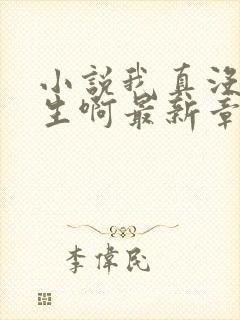 小說我真沒
生啊最新章
李偉民